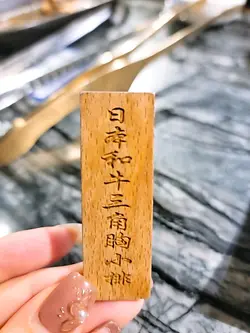 日本和牛三角胸小排